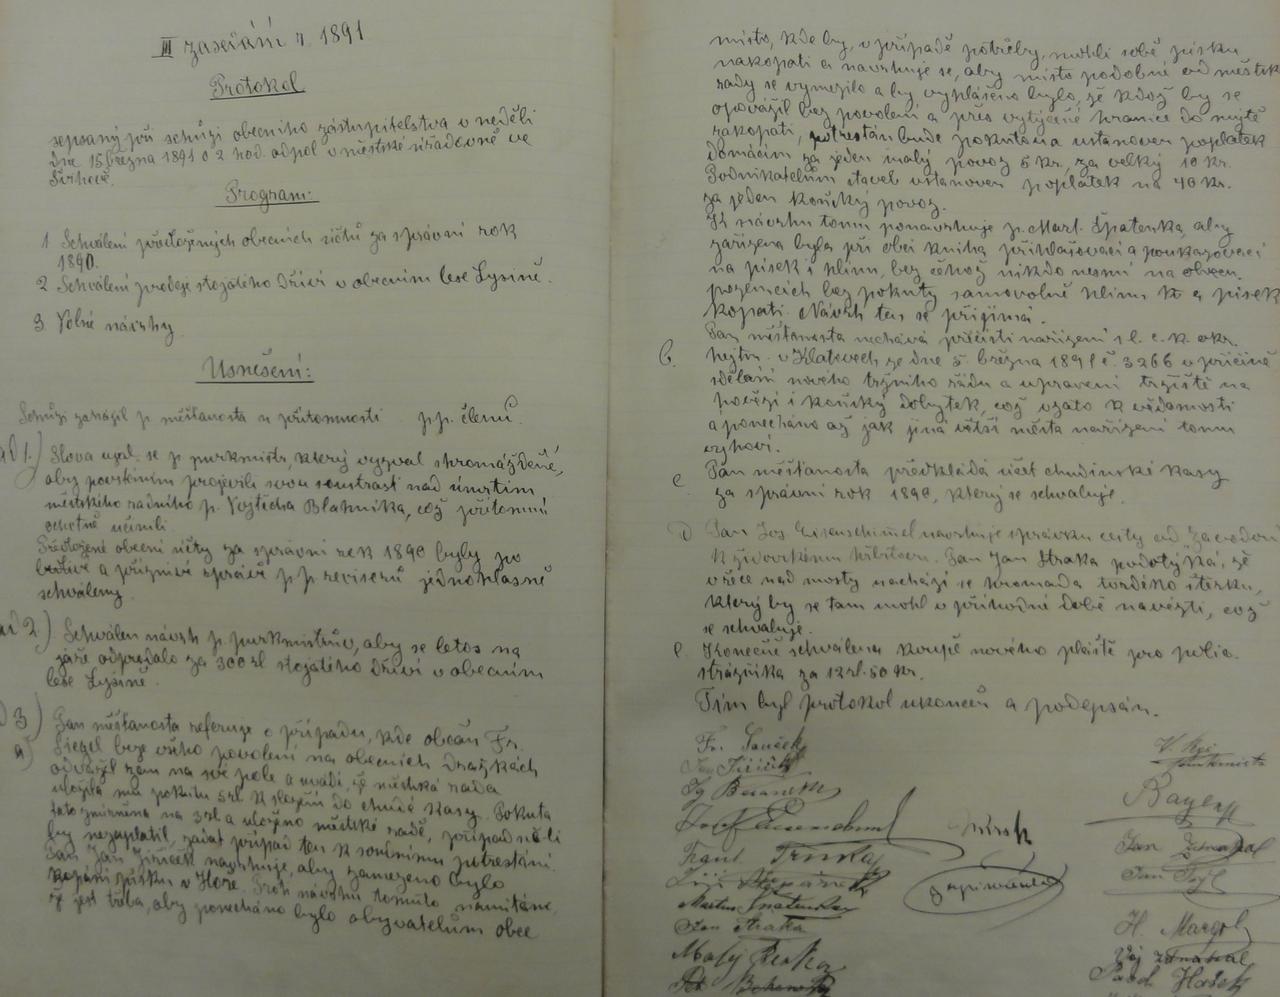 III zasedání r. 1891
Protokol
sepsaný při schůzi obecního zástupitelstva v neděli
dne 15 března 1891 o 2 hod. odpol v městské úřadovně ve
Program:
1 Schválení předložených obecních účtů za správní rok
1890.
2 Schválení prodeje stojatého dříví v obecním lese Lysině.
3. Volné návrhy
Usnešení:
Schůzi zahájil p. měšťanosta u přítomnosti p.p. členů.
ad 1.) Slova ujal se p. purkmistr, který vyzval shromážděné,
aby povstáním projevili svou soustrast nad úmrtím
městského radního p. Vojtěcha Blahníka, což přítomní
ochotně učinili.
Předložené obecní účty za správní rok 1890 byly po
a příznivé zprávě p.p. revisorů jednohlasně
schváleny.
ad 2) Schválen návrh p. purkmistrův, aby se letos na
jaře odprodalo za 300 zl stojatého dříví v obecním
lese Lysině.
3) Pan měšťanosta referuje o případu, kde občan Fr.
a) Siegel beze všeho povolení na obecních dražkách
odvážel zem na své pole a uvádí, že městská rada
uložila mu pokutu 5 zl. k složení do chudé kasy. Pokuta
tato zmírněna na 3 zl a uloženo městské radě, případně-li
by nezaplatil, žádat případ ten k soudnímu potrestání.
Pan Jan Jiříček navrhuje, aby zamezeno bylo
kopání písku v Hoře. Proti návrhu tomuto namítáno,
že jest třeba, aby ponecháno bylo obyvatelům obce
místo, kde by, v případě potřeby, mohli sobě písku
nakopati a navrhuje se, aby místo podobné od městsk
rady se vymezilo a by vyhlášeno bylo, že kdož by se
opovážil bez povolení a přes vytýčené hranice do
zakopati, potrestán bude pokutou a ustanoven poplatek
domácím za jeden malý povoz 5 kr, za velký 10 kr.
Podnikatelům staveb ustanoven poplatek na 40 kr.
za jeden koňský povoz.
K návrhu tomu ponavrhuje p. Mart. Špatenka, aby
zařízena byla při obci kniha přihlašovací a poukazovací
na písek i hlínu, bez čehož nikdo nesmí na obecn.
pozemcích bez pokuty samovolně hlínu a písek
kopati. Návrh ten se přijímá.
b. Pan měšťanosta nechává přečísti nařízení sl. c. k. okr.
hejtm. v Klatovech ze dne 5. března 1891 č. 3266 v příčině
sdělání nového tržního řádu a upravení tržiště na
hovězí i koňský dobytek, což vzato k vědomosti
a ponecháno až jak jiná větší města nařízení tomu
vyhoví.
c. Pán měšťanosta předkládá účet chudinské kasy
za správní rok 1890, který se schvaluje.
d) Pan Jos Eisenschimmel navrhuje spravku cesty od Závodon
k židovskému hřbitovu. Pan Jan Straka podotýká, že
v řece nad mosty nachází se hromada tvrdého štěrku,
který by se tam mohl v příhodné době navézti, což
se schvaluje.
e. Konečně schválena koupě nového pláště pro polic.
strážníka za 12 zl. 50 kr.
Tím byl protokol ukončen a podepsán.
Fr. Souček
Jan Jiříček
Ig Beránek
Frant. Trnka
Martin Špatenka
Jan Straka
Matěj
zapisovatel
purkmistr
Bayer
Jan
Jan
H. Margol